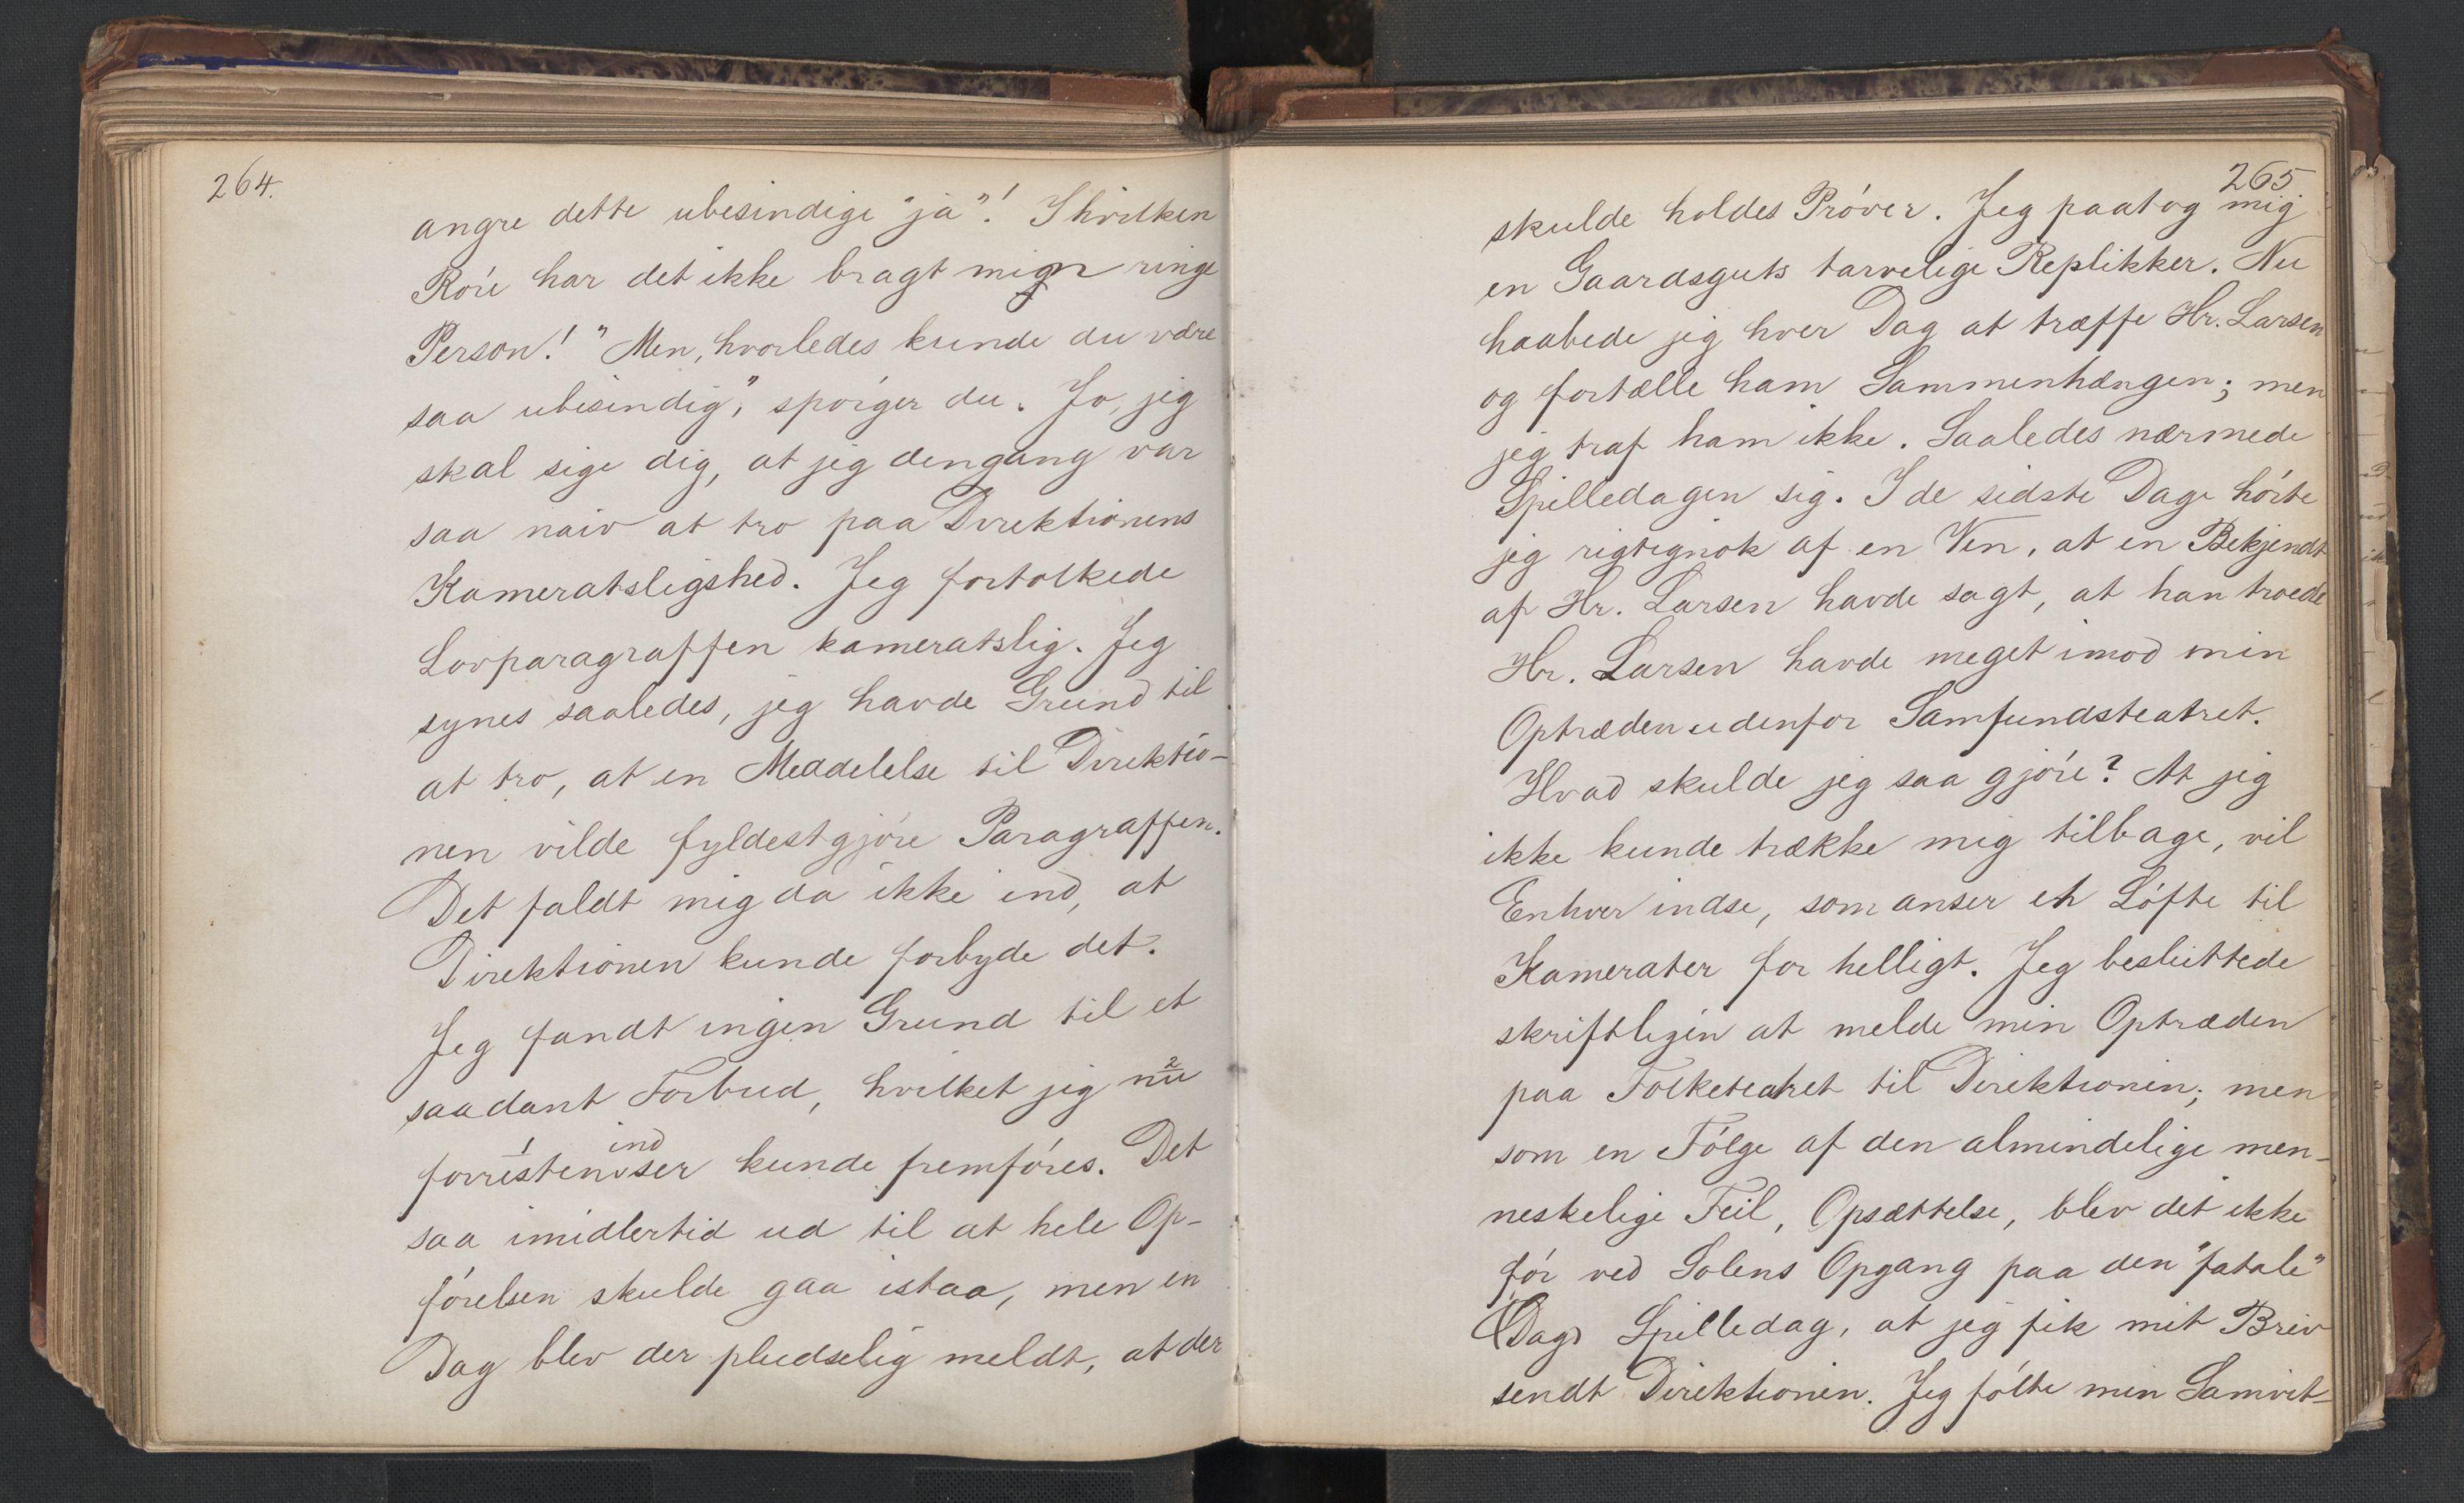 264.
angre dette ubesindige "ja"! I hvilken
Róre har det ikke bragt min ringe
Person! "Men, hvorledes kunde du være
saa ubesindig", spórger du. Jo, jeg
skal sige dig, at jeg dengang var
saa naiv at tro paa Direktionens
Kameratsligshed. Jeg fortolkede
Lovparagraffen kameratslig. Jeg
synes saaledes, jeg havde Grund til
at tro, at en Meddelelse til Direktio-
nen vilde fyldestgjóre Paragraffen.
Det faldt mig da ikke ind, at
Direktionen kunde forbyde det.
Jeg fandt ingen Grund til et
saadant Forbud, hvilket jeg nu
ind
ser kunde fremfóres. Det
saa imidlertid ud til at hele Op-
fórelsen skulde gaa istaa, men en
Dag blev der pludselig meldt, at der
265
skulde holdes Próver. Jeg paatog mig
en Gaardsguts tarvelige Replikker. Nu
haabede jeg hver Dag at træffe Hr. Larsen
og fortælle ham Sammenhængen; men
jeg traf ham ikke. Saaledes nærmede
Spilledagen sig. I de sidste Dage hórte
jeg rigtignok af en Ven, at en Bekjendt
af Hr. Larsen havde sagt, at han troede
Hr. Larsen havde meget imod min
Optræden udenfor Samfundsteatret.
Hvad skulde jeg saa gjóre? At jeg
ikke kunde trække mig tilbage, vil
Enhver indse, som anser et Lófte til
Kamerater for helligt. Jeg besluttede
skriftligen at melde min Optræden
paa Folketeatret til Direktionen; men
som en Fólge af den almindelige men-
neskelige Feil, Opsættelse, blev det ikke
fór ved Solens Opgang paa den "fatale"
Dags Spilledag, at jeg fik mit Brev
sendt Direktionen. Jeg fólte min Samvit-